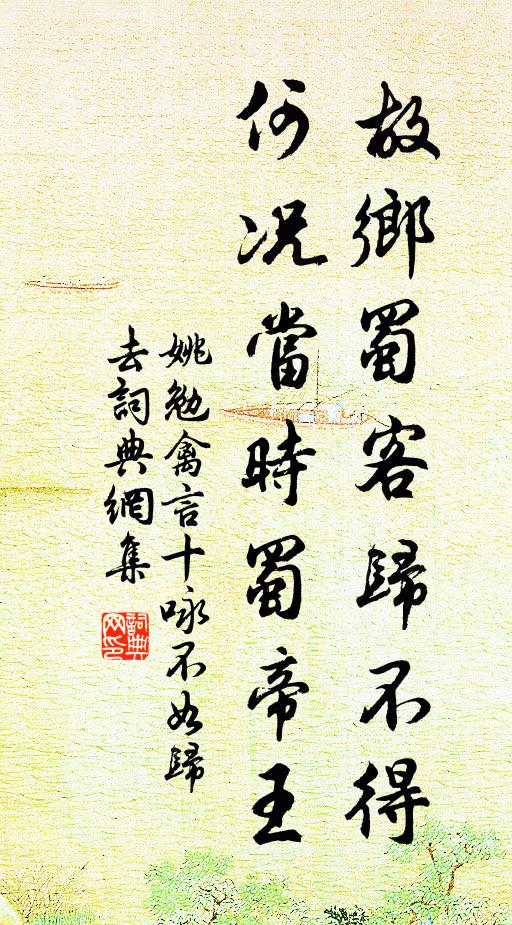 故鄉蜀客歸不得
何况當時蜀帝王
姚勉禽言十咏不如歸
去詞典網集
詞典
网印